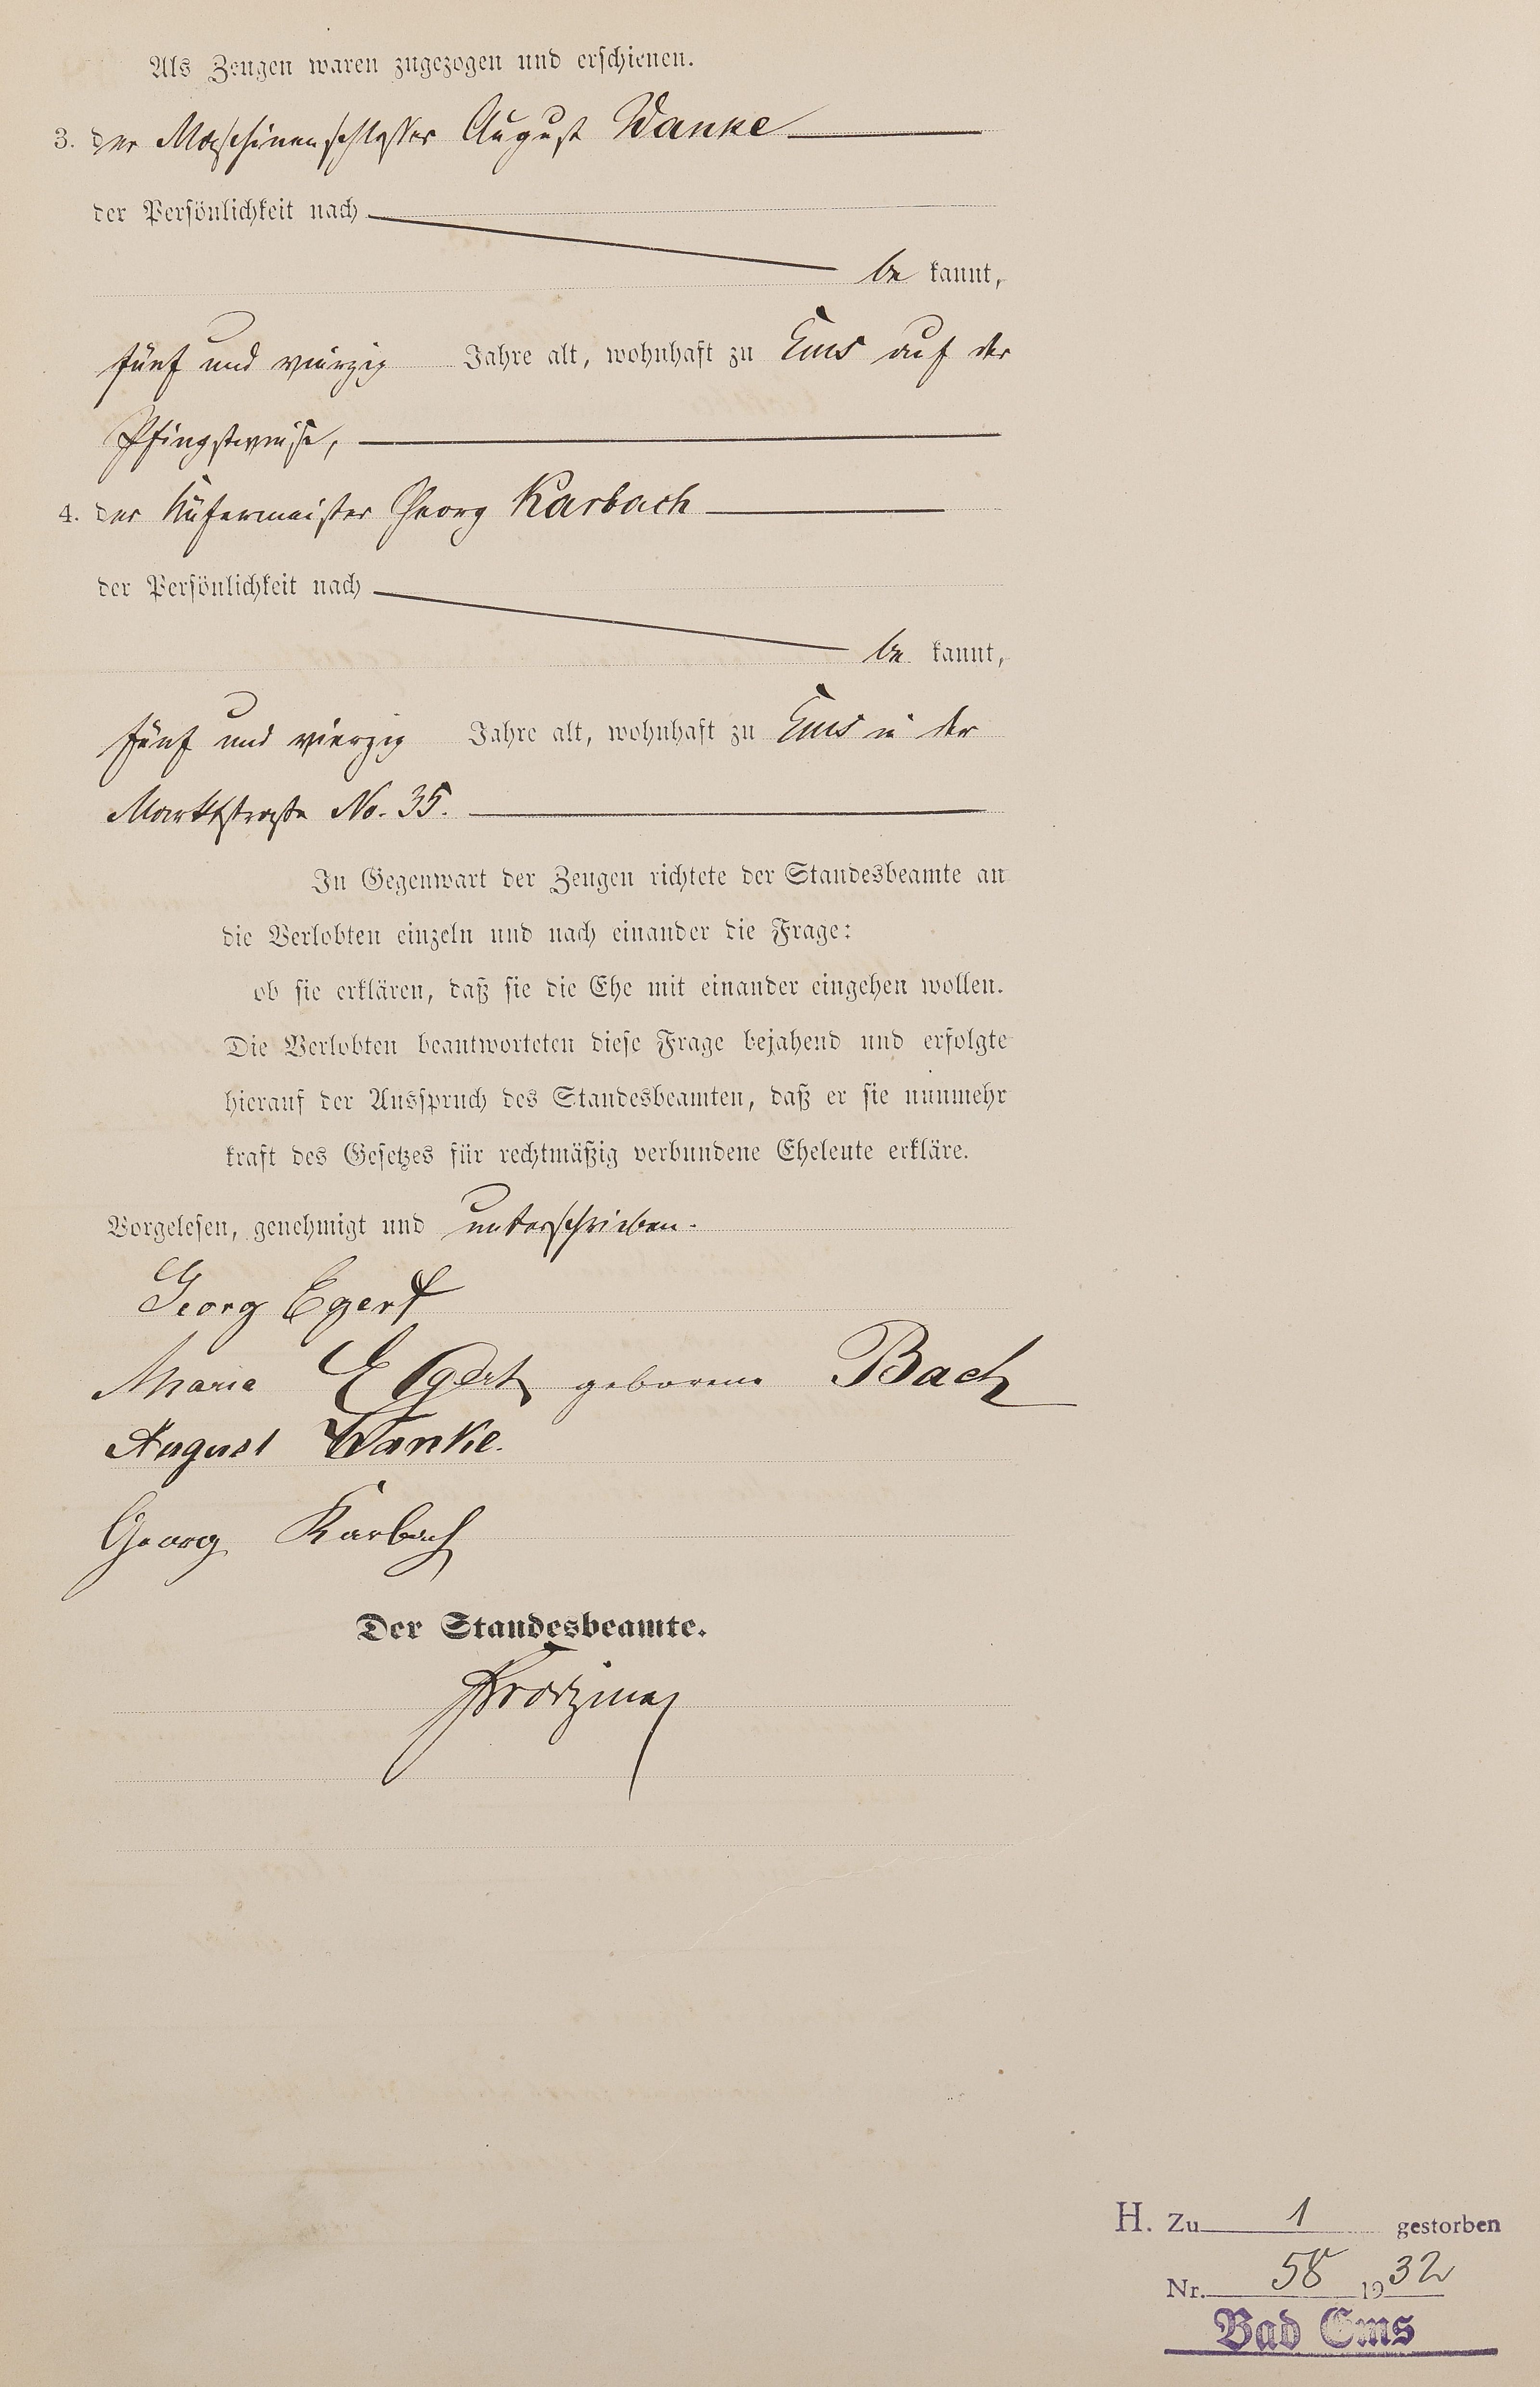 Als Zeugen waren zugezogen und erschienen.
3. der Maschinenschlosser August Wanke
der Persönlichkeit nach
be kannt,
fünf und vierzig Jahre alt, wohnhaft zu Ems auf der
Pfingstweise,
4. der Küfermeister Georg Karbach
der Persönlichkeit nach
be kannt,
fünf und vierzig Jahre alt, wohnhaft zu Ems in der
Marktstraße No. 35.
In Gegenwart der Zeugen richtete der Standesbeamte an
die Verlobten einzeln und nach einander die Frage:
ob sie erklären, daß sie die Ehe mit einander eingehen wollen.
Die Verlobten beantworteten diese Frage bejahend und erfolgte
hierauf der Ausspruch des Standesbeamten, daß er sie nunmehr
kraft des Gesetzes für rechtmäßig verbundene Eheleute erkläre.
Vorgelesen, genehmigt und unterschrieben.
Georg Egert
Maria Egert geborene Bach
August Wanke.
Georg Karbach
Der Standesbeamte.
H. Zu 1 gestorben
Nr. 58 1932
Bad Ems